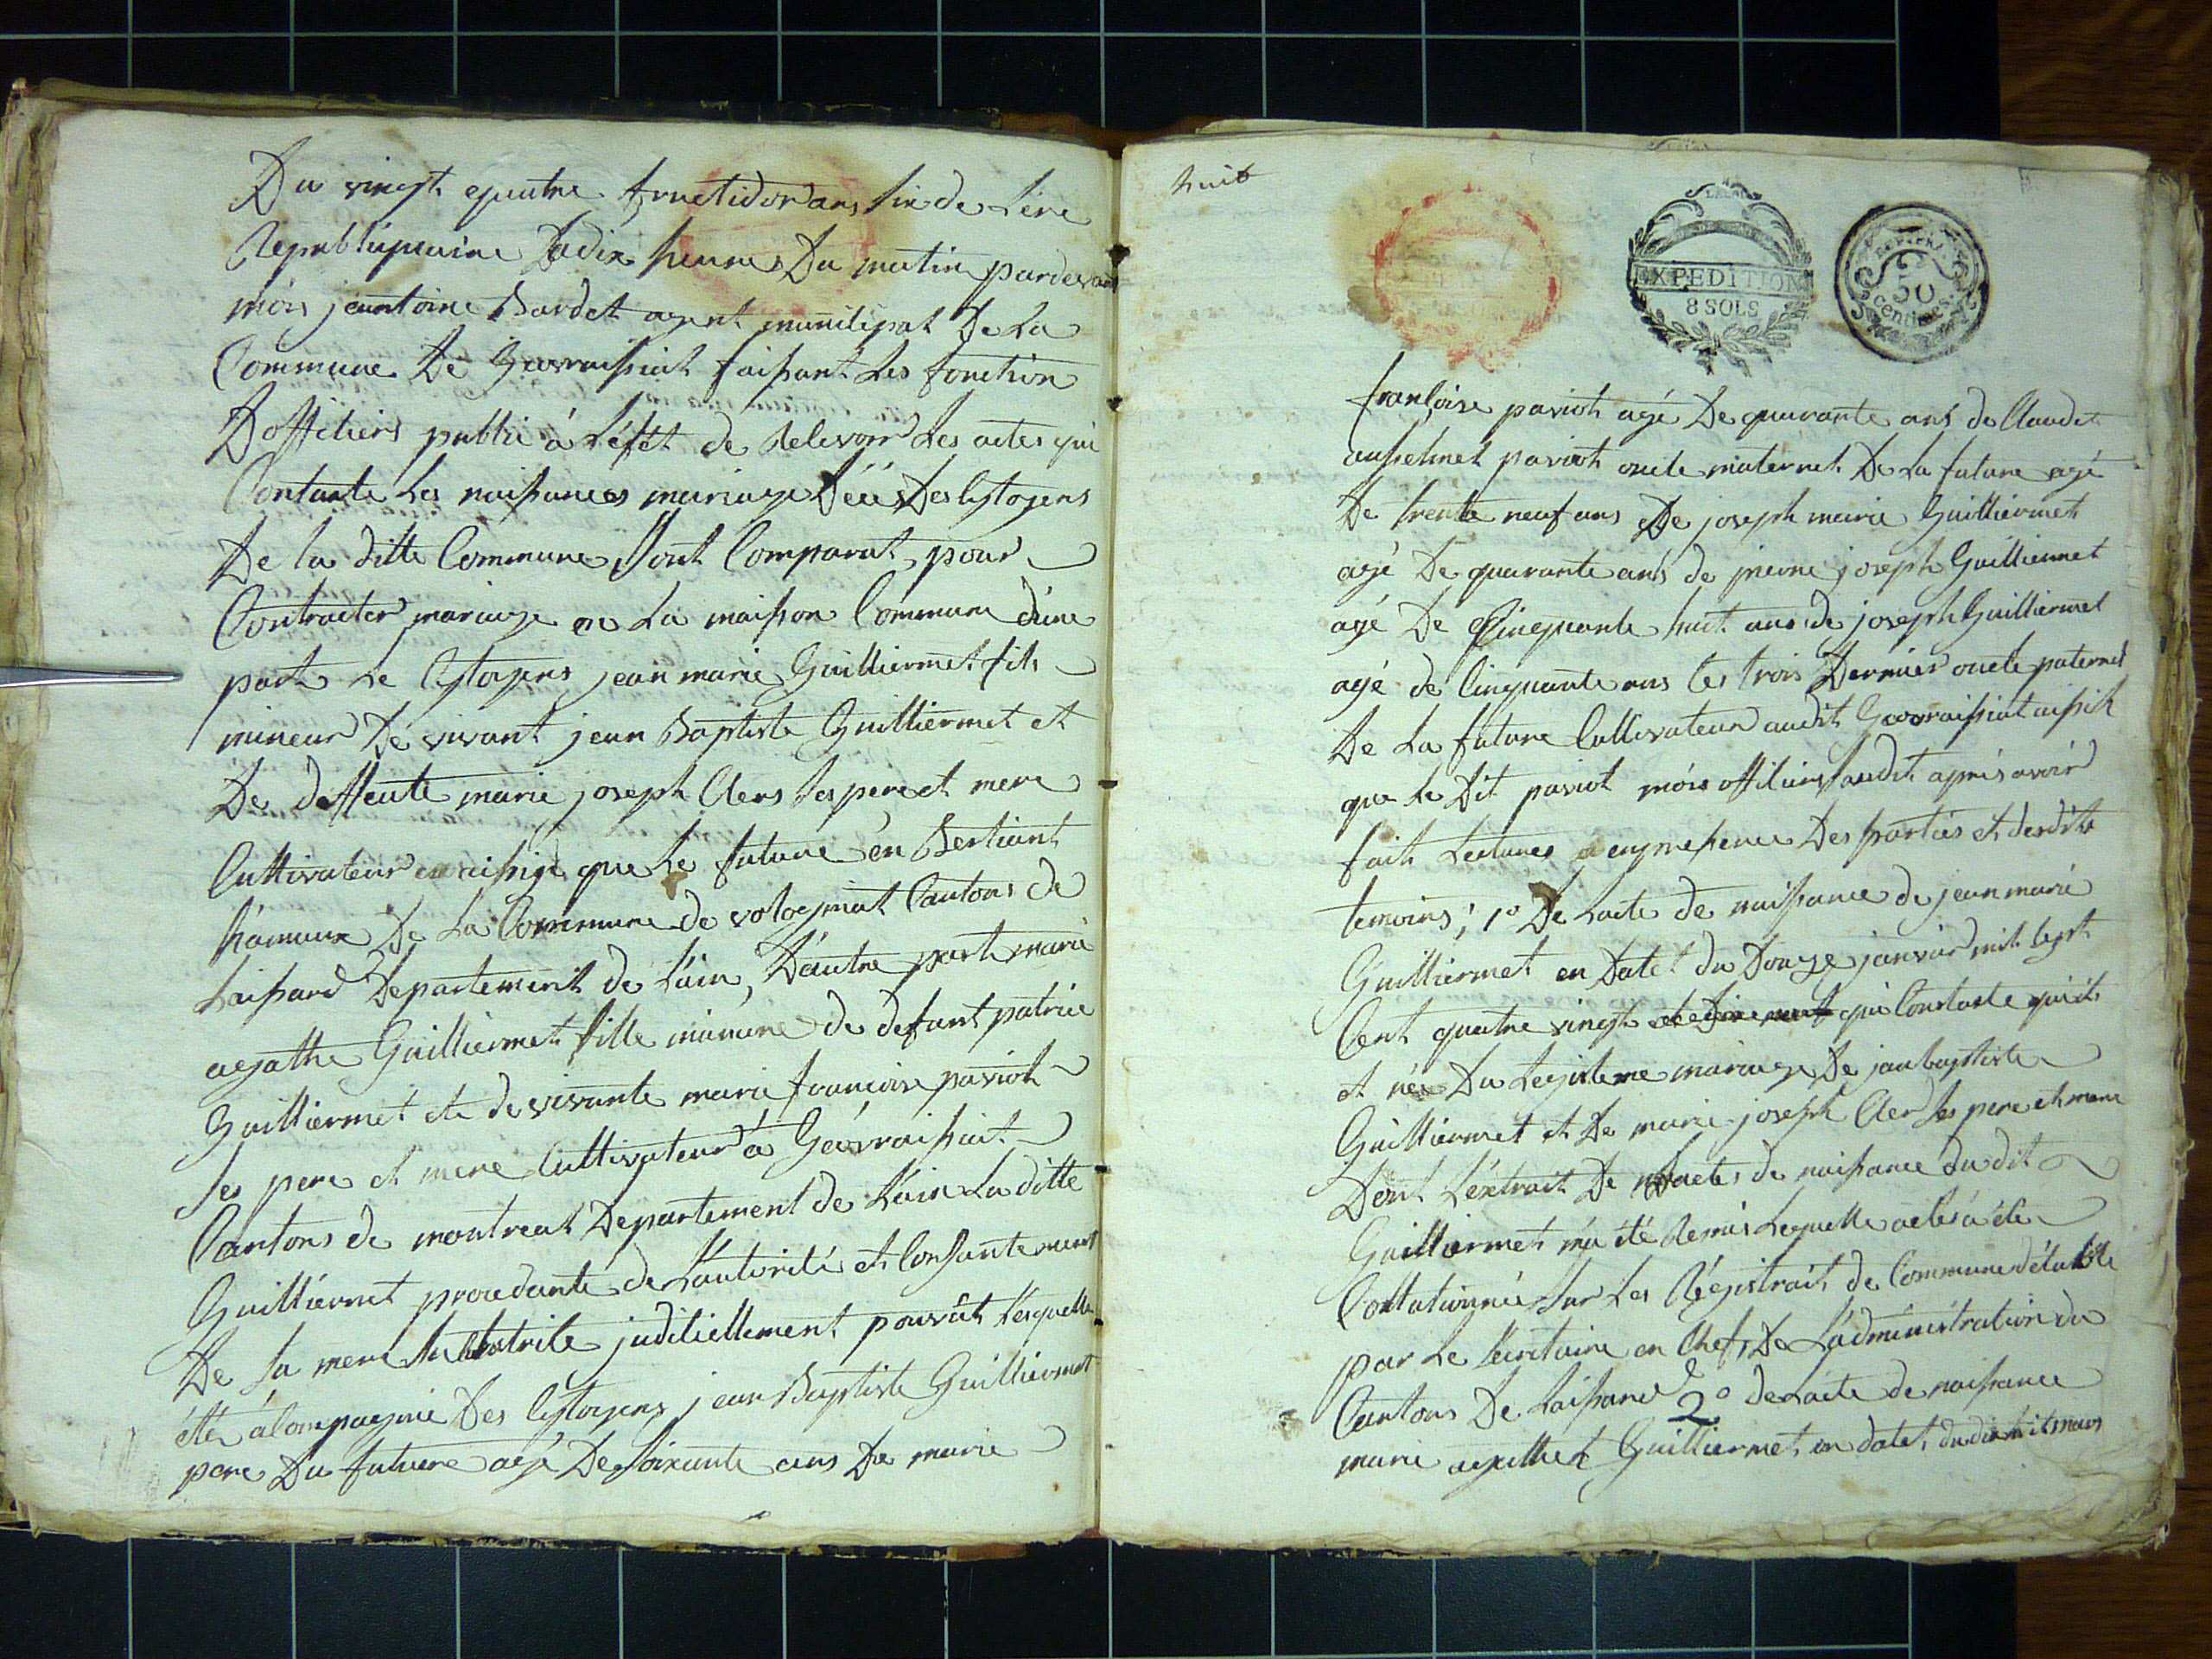 Du vingt quatre fructidor ans six de Lère
Republiquaine à dix heures Du matin pardevant
mois jeantoine Bardet agent municipat De La
Commune De Geovraissiat faissant Les fonction
Dofficiers public à Léfét de Relevoir Les actes qui
Contante Les naissances mariage Décés Des Cytoyens
De la ditte Commune Sont Comparut pour
Contracter mariage en La maisson Commune d'une
part Le Cytoyens jean marie Guilliermet fils
mineur De vivant jean Baptiste Guilliermet et
De deffente marie joseph Clers Ses pere et mere
Cultivateur que Le future én Bertiant
hámaux De La Commune de vologniat Cantons de
Laissard Departement de L'ain, D'autre part marie
agathe Guilliermet fille mineure de defunt patrice
Guilliermet et de vivante marie francoise paviot
Ses pere et mere Cultivateur à Géovraissiat
Cantons de montreal Departement de Láin La ditte
Guilliermet procedante de L'autorité et Consantement
De Sa mere tutrice judiciellement pourvût Lesquelle
été acompagnié Des Cytoyens jean Baptiste Guilliermet
pere Du future agé De Soixante ans De marie
huit
EXPEDITION
8 SOLS
50
Centimes.
françoise paviot agé De quarante ans de Claude
anshelmet paviot oncle maternel De La future agé
De trente neuf ans De joseph marie Guilliermet
agé De quarante ans de pierre joseph Guilliermet
agé De Cinquante huit ans de joseph Guilliermet
agé de Cinquante ans Les trois Dernier oncle paternel
De La future Cultivateur audit Geovraissiat aissit
que Le Dit paviot mois officiers Susdit aprés avoir
fait Lectures en presence Des parties et desdits
temoins; 1º De Lacte de naissance de jean marie
Guilliermet en Datet du Douze janvier mil sept
Cent quatre vingt qui Constate quil
et née Du Legisteme mariage De jean baptiste
Guilliermet et De marie joseph Cler Ses pere et mere
Dont L'éxtrait De actes de naissance dudit
Guilliermet má été Remis Lequelle
Collationnée Sur Les Régistrait de Commune
par Le Secretaire en Chef De L'administration du
Cantons De Laissard 2º de Lacte de naissance
marie agathet Guilliermet en datet du dix huit mars